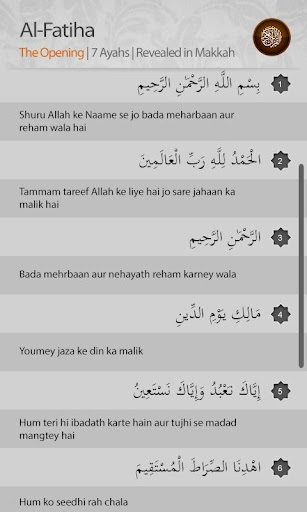 Al-Fatiha
The Opening | 7 Ayahs | Revealed in Makkah
بِسْمِ اللَّهِ الرَّحْمَٰنِ الرَّحِيمِ 1
Shuru Allah ke Naame se jo bada meharbaan aur
reham wala hai
الْحَمْدُ لِلَّهِ رَبِّ الْعَالَمِينَ 2
Tammam tareef Allah ke liye hai jo sare jahaan ka
malik hai
الرَّحْمَٰنِ الرَّحِيمِ 3
Bada mehrbaan aur nehayath reham karney wala
مَالِكِ يَوْمِ الدِّينِ 4
Youmey jaza ke din ka malik
إِيَّاكَ نَعْبُدُ وَإِيَّاكَ نَسْتَعِينُ 5
Hum teri hi ibadath karte hain aur tujhi se madad
mangtey hai
اهْدِنَا الصِّرَاطَ الْمُسْتَقِيمَ 6
Hum ko seedhi rah chala